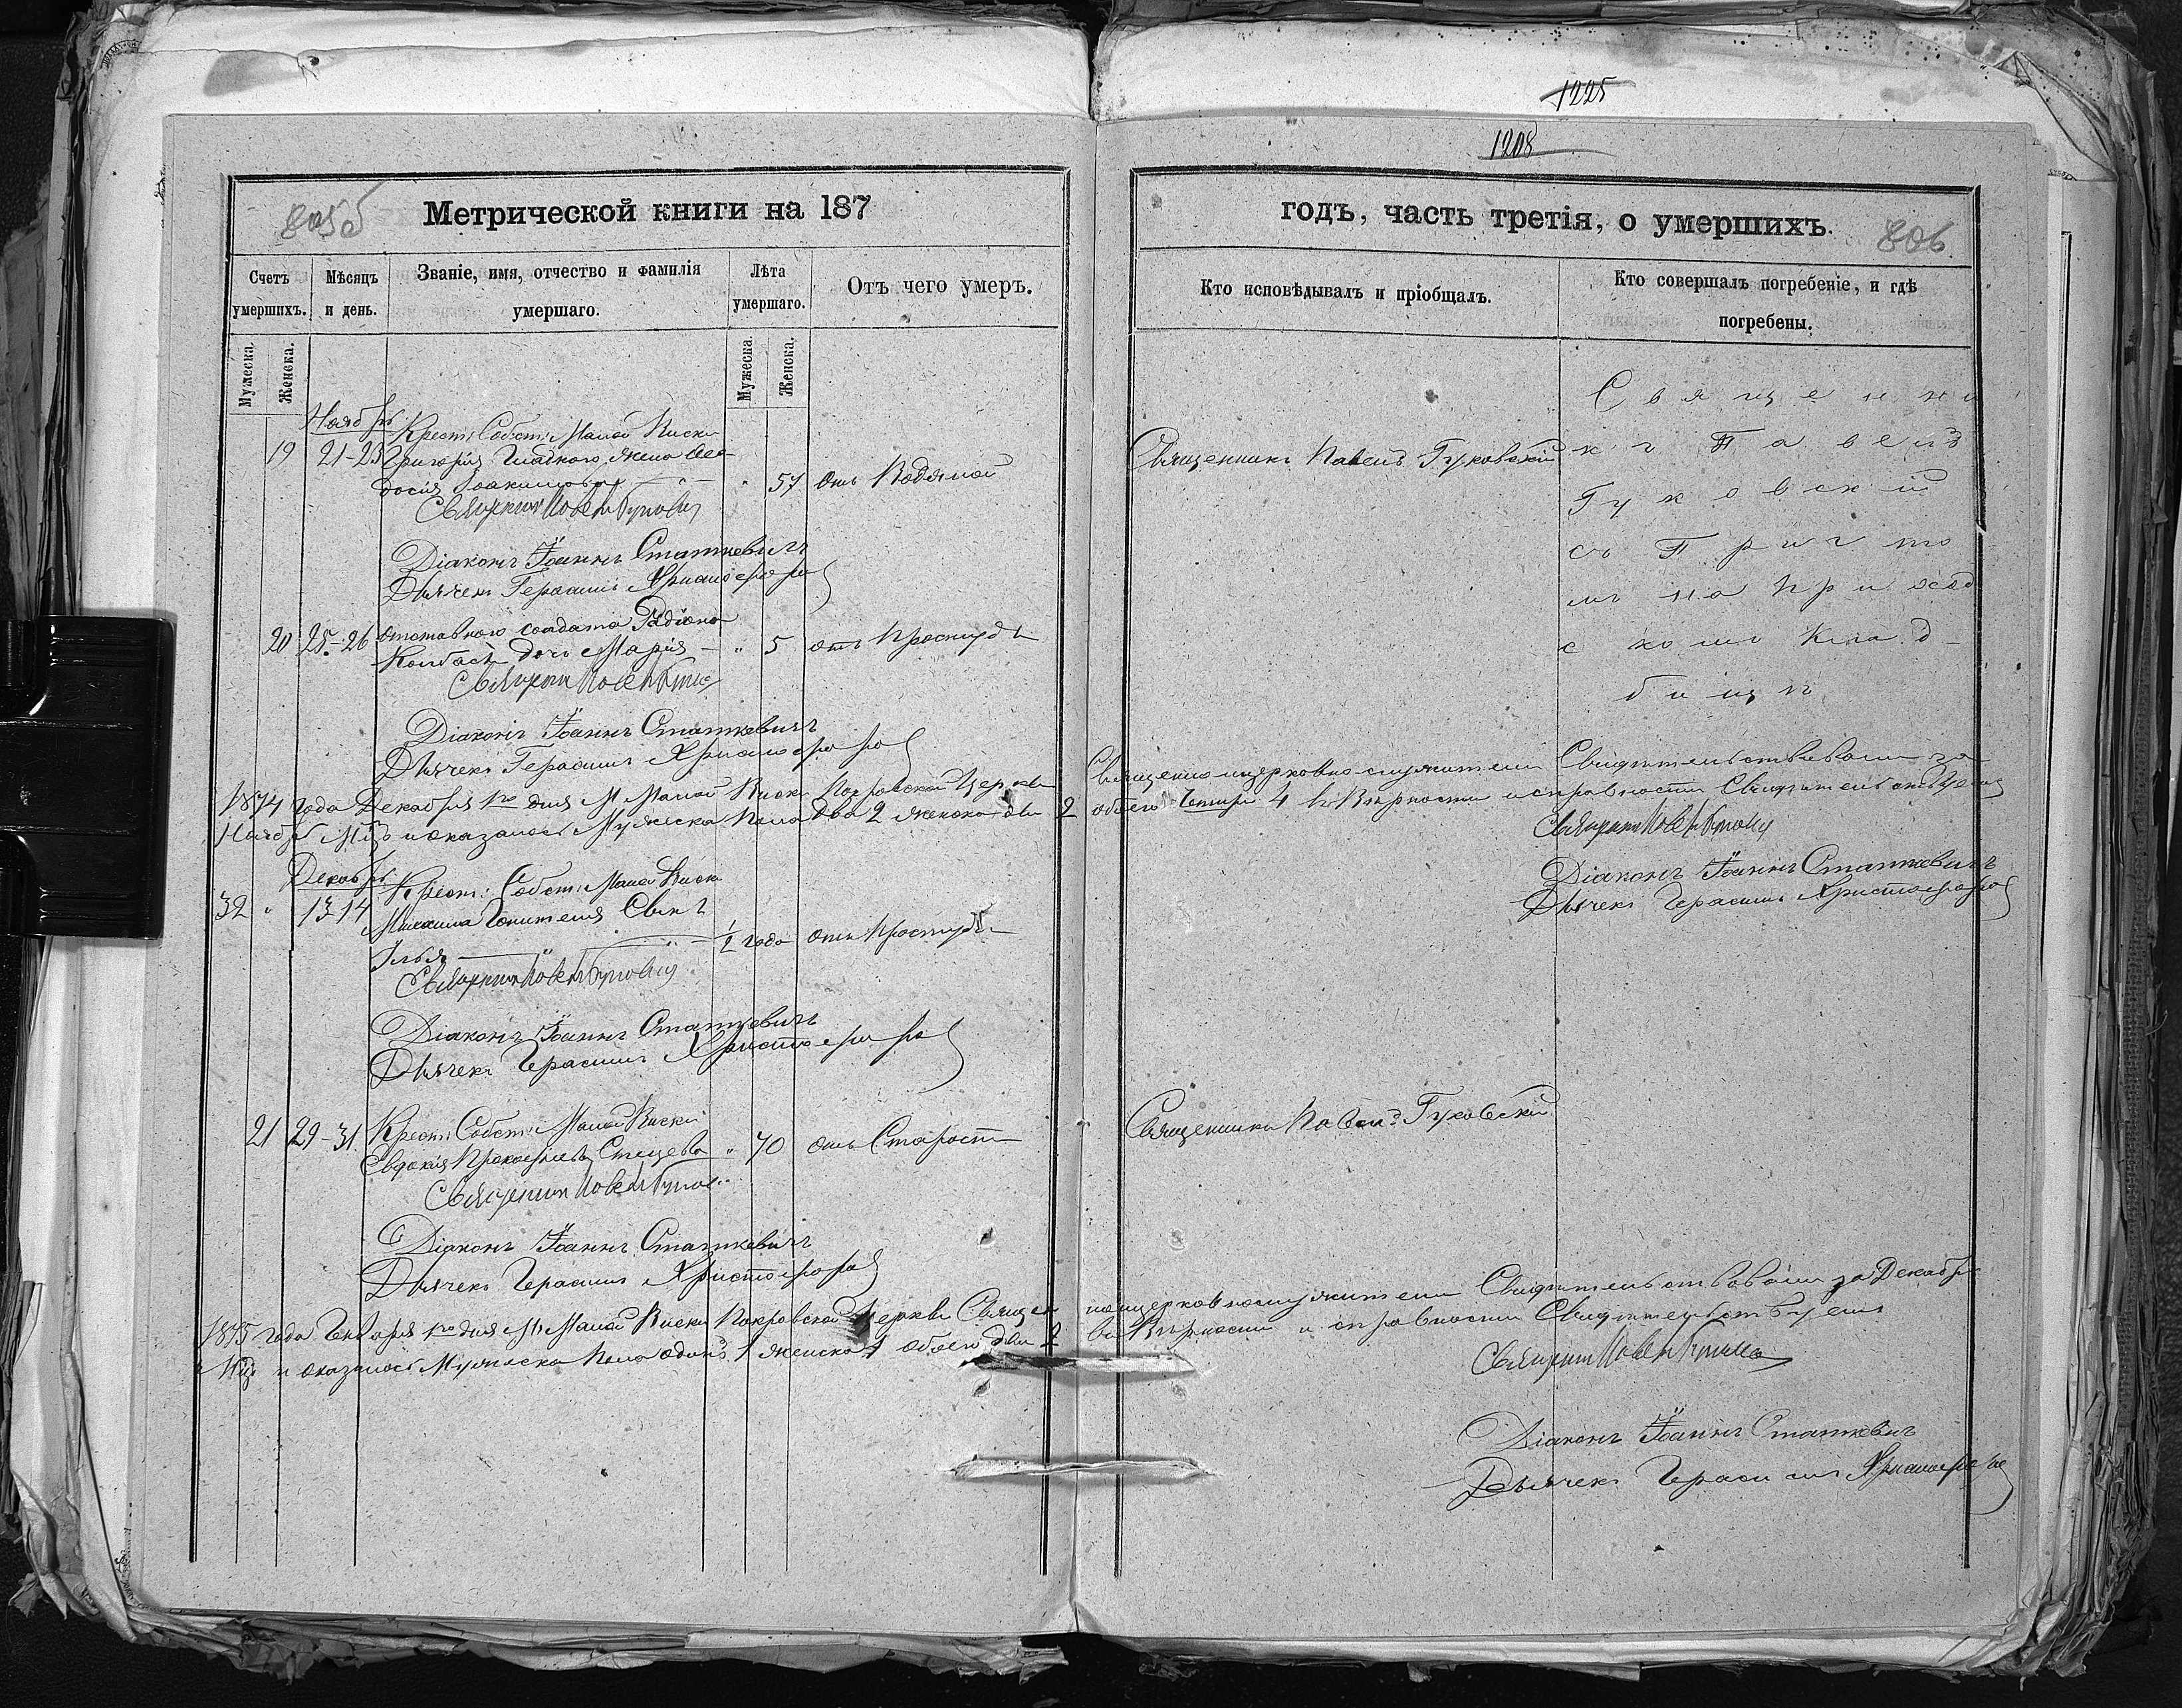 1225
1208
805б
Метрической книги на 187
Счетъ умершихъ.
Мѣсяцъ и день.
Званіе, имя, отчество и фамилія умершаго.
Лѣта умершаго.
Отъ чего умеръ.
Мужеска.
Женска.
Мужеска.
Женска.
Ноябрь
Крест: Собст: Малой Виски
19 21-23 Григорія Гладкого жена Ѳео-
досія Іоакимова " 57 отъ Водяной
Священникъ Павелъ Гуковскій
Діаконъ Іоаннъ Статкевичъ
Дьячекъ Герасимъ Христофоровъ
20 25-26 Отставного солдата Радіона
Колбасы дочь Марія " 5 отъ Простуды
Священникъ Павелъ
Діаконъ Іоаннъ Статкевичъ
Дьячекъ Герасимъ Христофоровъ
1874 года Декабря 1го дня М Малой Виски Покровской Церкви
Ноябрь М-цъ и оказалось Мужеска Пола два 2 женска две 2
Декабрь
Крест: Собст: Малой Виски
32 " 13-14 Михаила сынъ
Илья 1/2 года отъ Простуды
Священникъ Павелъ Гуковскій
Діаконъ Іоаннъ Статкевичъ
Дьячекъ Герасимъ Христофоровъ
21 29-31 Крест: Собст: Малой Виски
Евдокія " 70 отъ Старости
Священникъ Павелъ
Діаконъ Іоаннъ Статкевичъ
Дьячекъ Герасимъ Христофоровъ
1875 года Генваря 1го дня М Малой Виски Покровской Церкви Священ
М-цъ и оказалось Мужеска Пола одинъ 1 женска 1 обоего две 2
годъ, часть третія, о умершихъ.
806
Кто исповѣдывалъ и пріобщалъ.
Кто совершалъ погребеніе, и гдѣ погребены.
Священникъ Павелъ Гуковскій
Священни
къ Павелъ
Гуковскій
съ Причто
мъ на приход
скомъ Клад-
бищѣ
Священно-церковно-служители Свидѣтельствовали за
обоего Четыри 4 въ Вѣрности и справности Свидѣтельствуемъ
Священникъ Павелъ Гуковскій
Діаконъ Іоаннъ Статкевичъ
Дьячекъ Герасимъ Христофоровъ
Священникъ Павелъ Гуковскій
ноцерковнослужители Свидѣтельствовали за Декабрь
въ Вѣрности и справности Свидѣтельствуемъ
Священникъ Павелъ
Діаконъ Іоаннъ Статкевичъ
Дьячекъ Герасимъ Христофоровъ